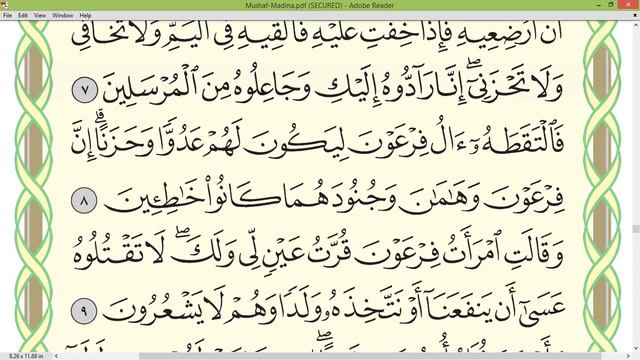 Mushaf-Madina.pdf (SECURED) - Adobe Reader
File Edit View Window Help
أَنْ أَرْضِعِيهِ فَإِذَا خِفْتِ عَلَيْهِ فَأَلْقِيهِ فِى ٱلْيَمِّ وَلَا تَخَافِى
وَلَا تَحْزَنِىٓ ۖ إِنَّا رَآدُّوهُ إِلَيْكِ وَجَاعِلُوهُ مِنَ ٱلْمُرْسَلِينَ ٧
فَٱلْتَقَطَهُۥٓ ءَالُ فِرْعَوْنَ لِيَكُونَ لَهُمْ عَدُوًّا وَحَزَنًا ۗ إِنَّ
فِرْعَوْنَ وَهَٰمَٰنَ وَجُنُودَهُمَا كَانُوا۟ خَٰطِـِٔينَ ٨
وَقَالَتِ ٱمْرَأَتُ فِرْعَوْنَ قُرَّتُ عَيْنٍ لِّى وَلَكَ ۖ لَا تَقْتُلُوهُ
عَسَىٰٓ أَن يَنفَعَنَآ أَوْ نَتَّخِذَهُۥ وَلَدًا وَهُمْ لَا يَشْعُرُونَ ٩
8.26 x 11.68 in